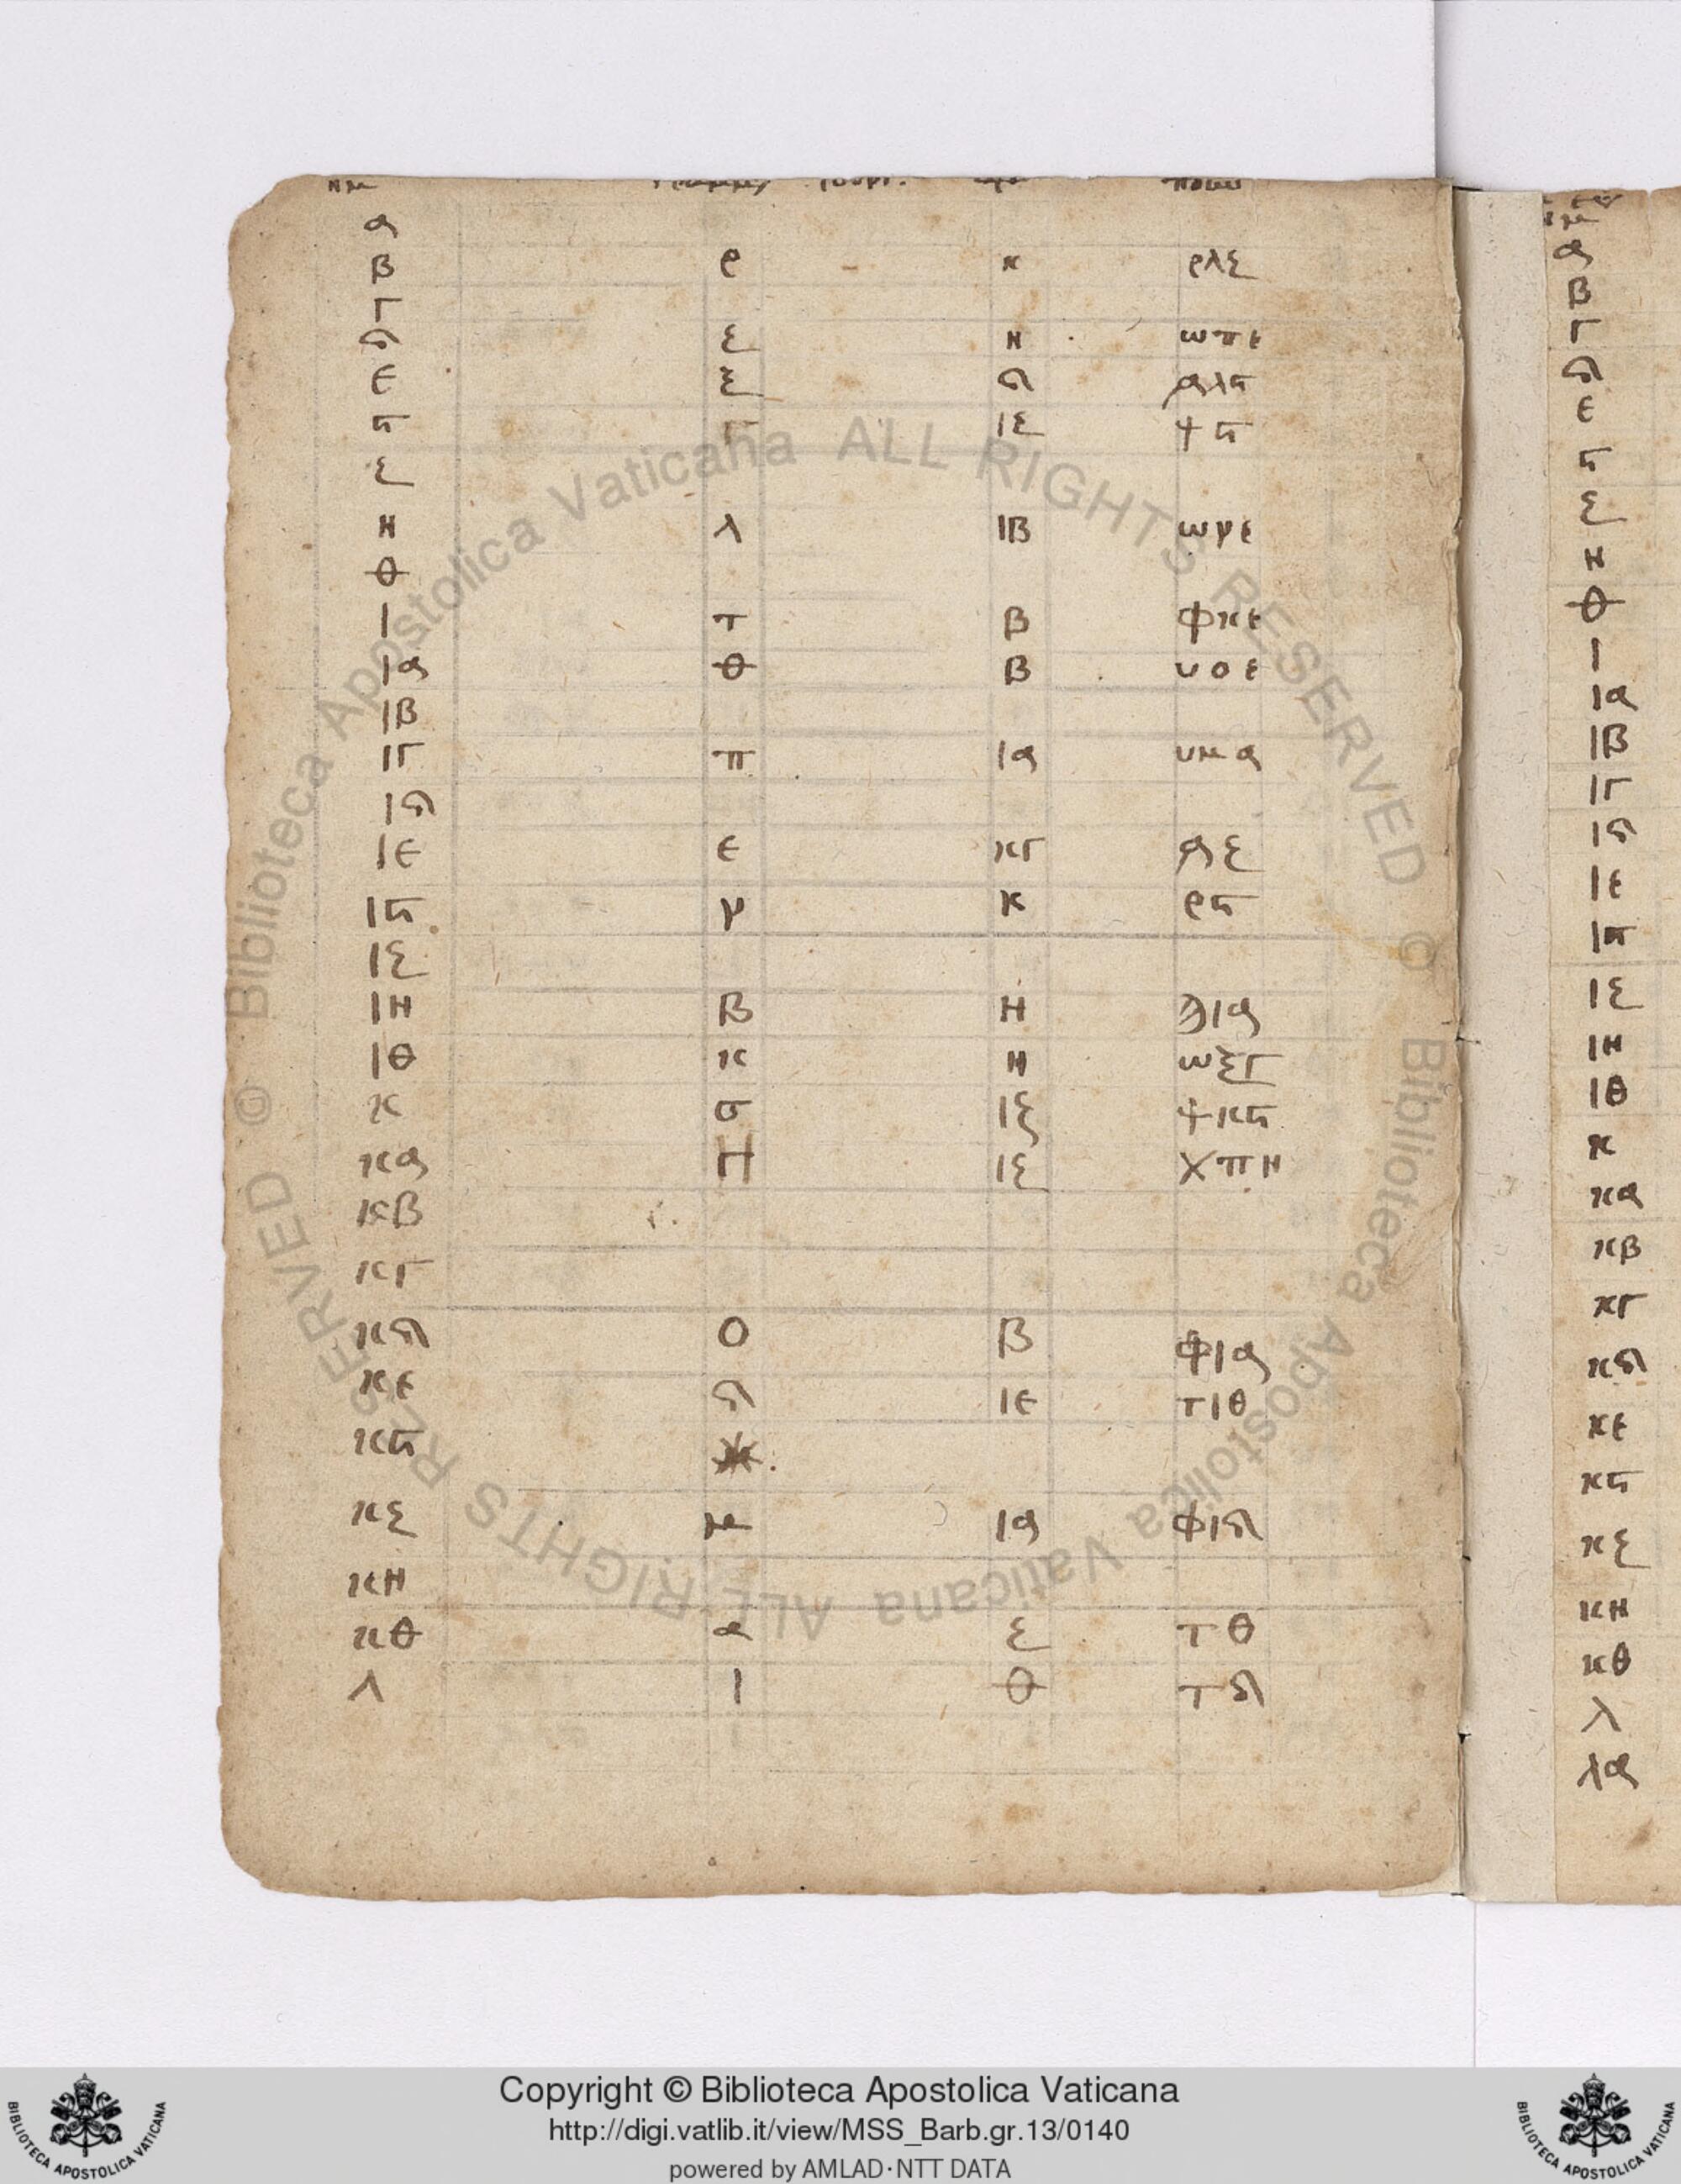 α
β ρ κ ρλζ
γ
δ ζ η ωπε
ε ξ δ αλϛ
ϛ γ ιζ ψϛ
ζ
η λ ιβ ωνε
θ
ι τ β φκε
ια θ β υοε
ιβ
ιγ π ια υμα
ιδ
ιε ε κγ αζ
ιϛ ν κ ρϛ
ιζ
ιη β η ϡια
ιθ κ η ωξγ
κ σ ιξ ψκϛ
κα Π ιζ χπη
κβ
κγ
κδ ο β φια
κε δ ιε τιθ
κϛ
κζ μ ια φιδ
κη
κθ α ζ τθ
λ ι θ τδ
α
β
γ
δ
ε
ϛ
ζ
η
θ
ι
ια
ιβ
ιγ
ιδ
ιε
ιϛ
ιζ
ιη
ιθ
κ
κα
κβ
κγ
κδ
κε
κϛ
κζ
κη
κθ
λ
λα
© Biblioteca Apostolica Vaticana ALL RIGHTS RESERVED © Biblioteca Apostolica Vaticana ALL RIGHTS RESERVED
Copyright © Biblioteca Apostolica Vaticana
http://digi.vatlib.it/view/MSS_Barb.gr.13/0140
powered by AMLAD·NTT DATA
BIBLIOTECA APOSTOLICA VATICANA
BIBLIOTECA APOSTOLICA VATICANA